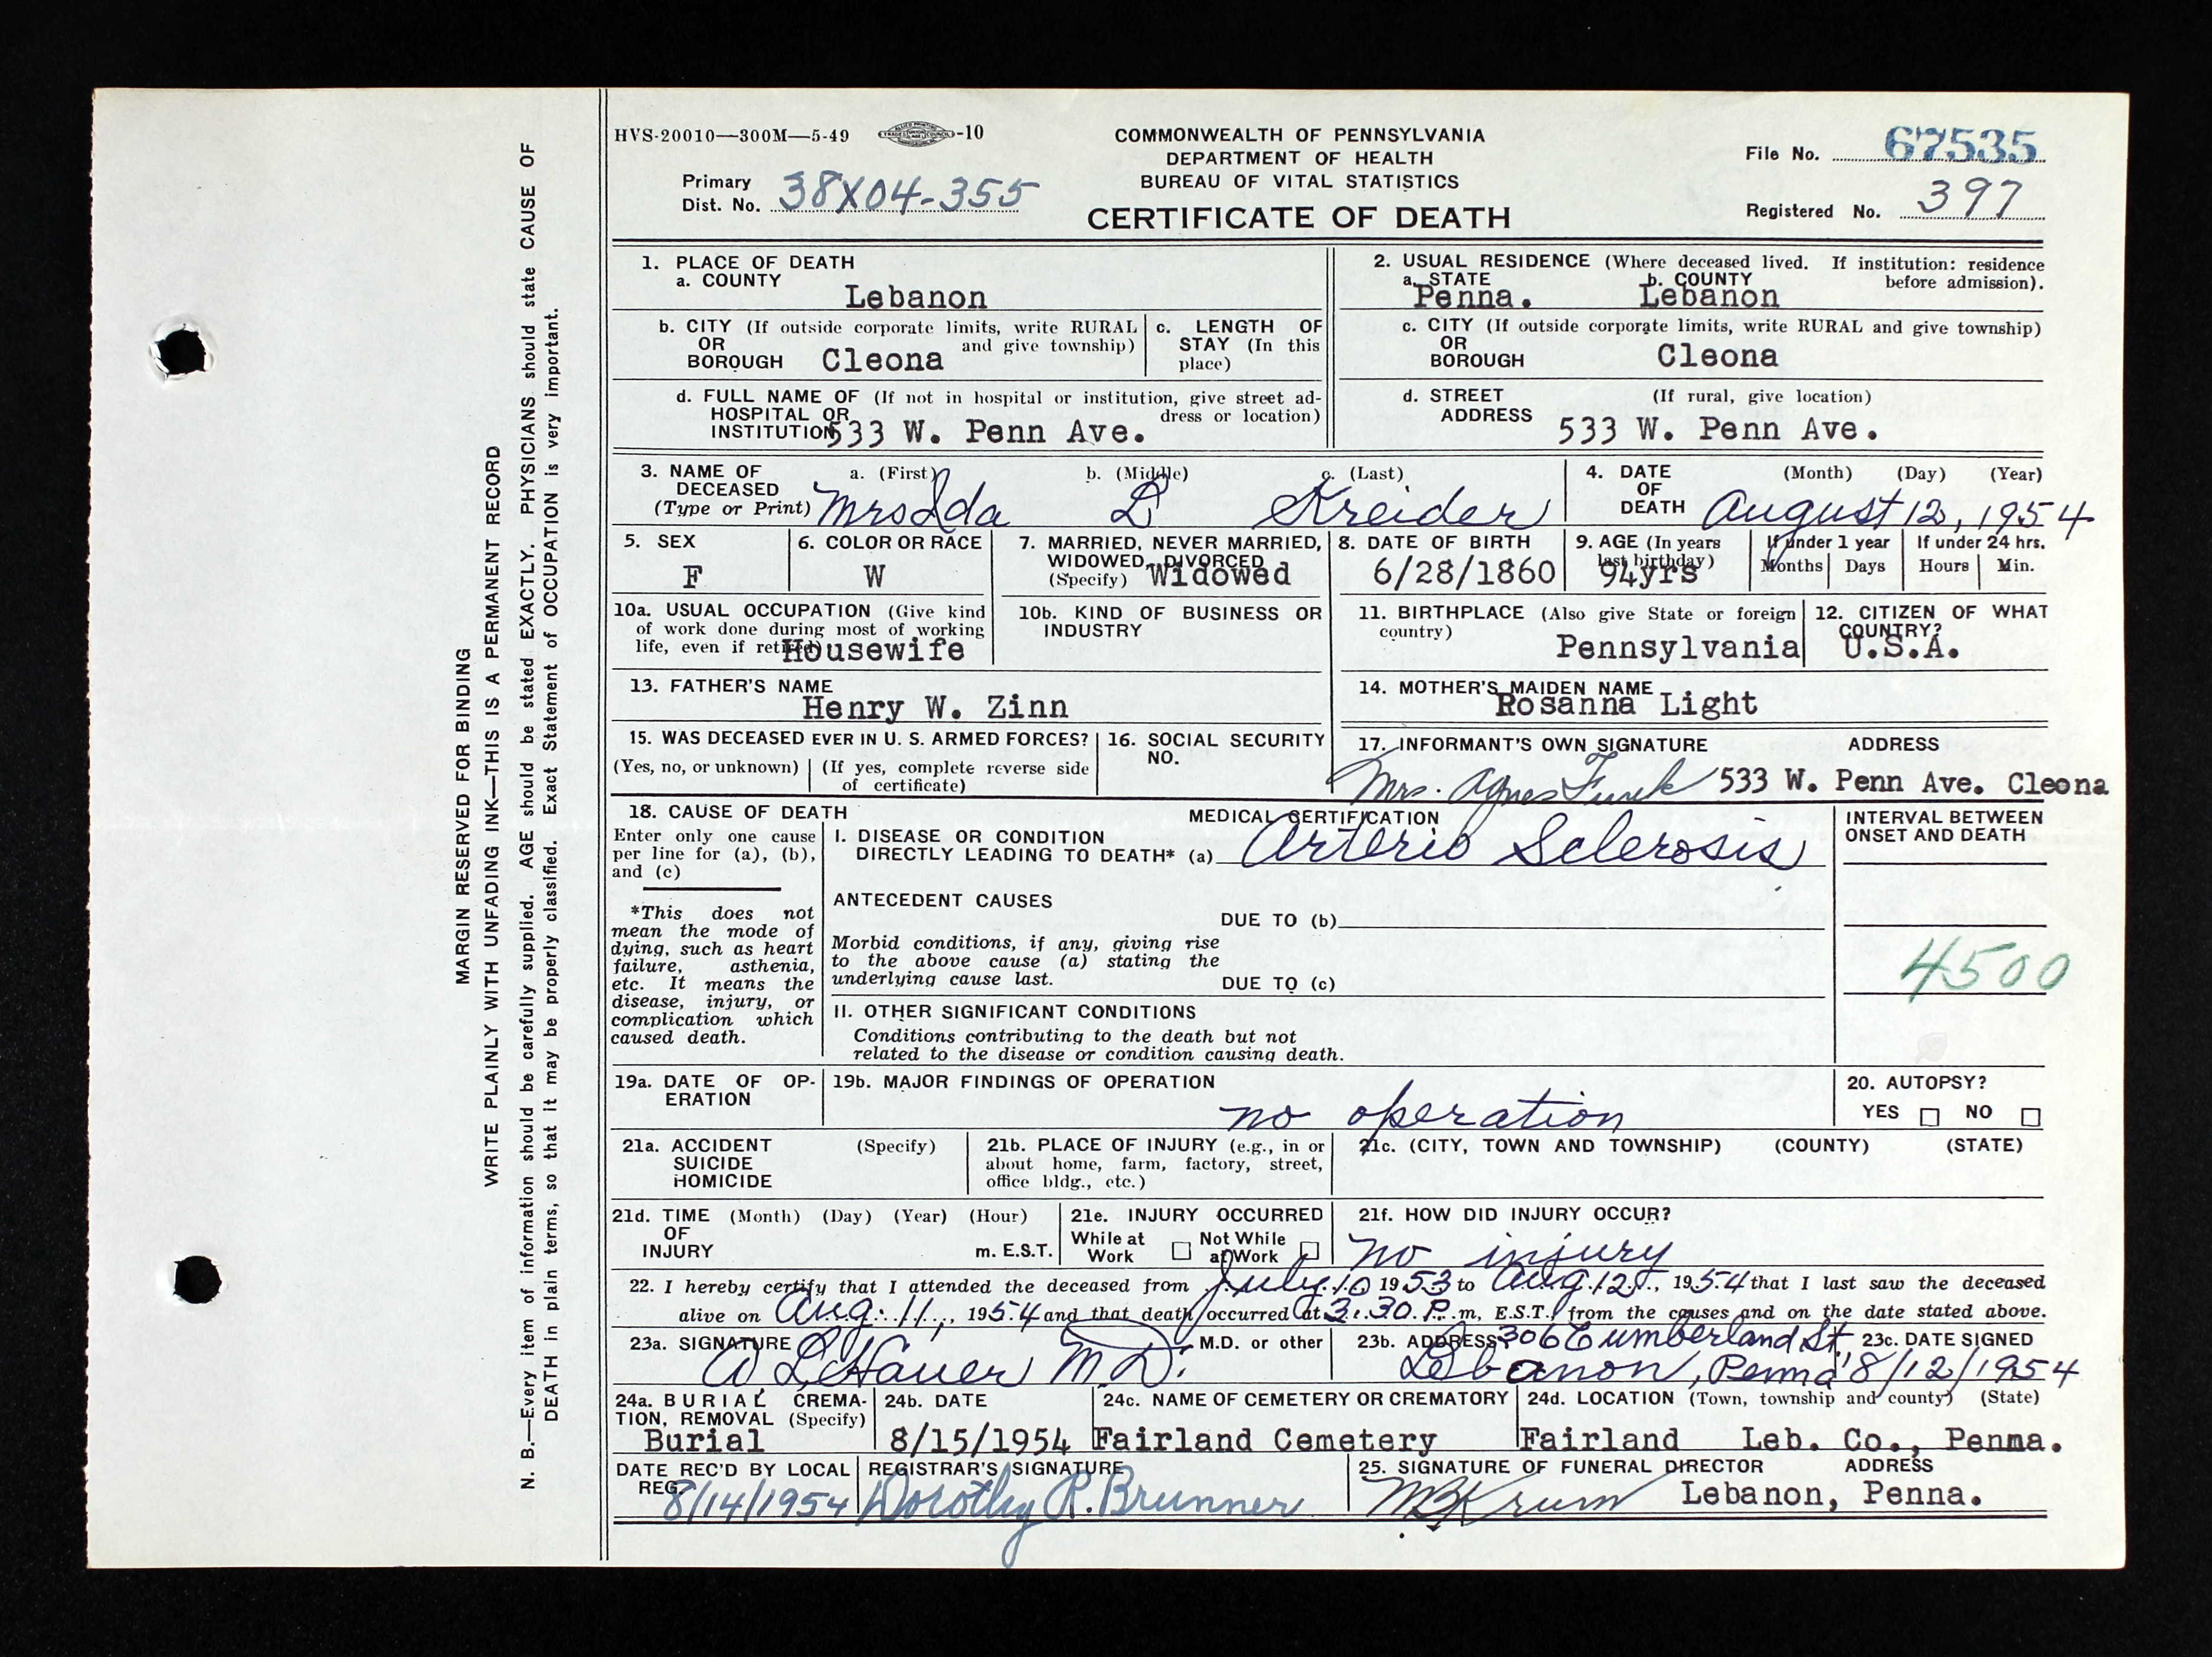 HVS-20010—300M—5-49 -10
COMMONWEALTH OF PENNSYLVANIA
DEPARTMENT OF HEALTH
BUREAU OF VITAL STATISTICS
CERTIFICATE OF DEATH
Primary
Dist. No. 38X04-355
File No. 67535
Registered No. 397
1. PLACE OF DEATH
a. COUNTY
Lebanon
b. CITY (If outside corporate limits, write RURAL
OR and give township)
BOROUGH Cleona
c. LENGTH OF
STAY (In this
place)
d. FULL NAME OF (If not in hospital or institution, give street ad-
HOSPITAL OR dress or location)
INSTITUTION 533 W. Penn Ave.
2. USUAL RESIDENCE (Where deceased lived. If institution: residence
a. STATE b. COUNTY before admission).
Penna. Lebanon
c. CITY (If outside corporate limits, write RURAL and give township)
OR
BOROUGH Cleona
d. STREET (If rural, give location)
ADDRESS 533 W. Penn Ave.
3. NAME OF a. (First) b. (Middle) c. (Last)
DECEASED
(Type or Print) Mrs Ida L Kreider
4. DATE (Month) (Day) (Year)
OF
DEATH August 12, 1954
5. SEX
F
6. COLOR OR RACE
W
7. MARRIED, NEVER MARRIED,
WIDOWED, DIVORCED
(Specify) Widowed
8. DATE OF BIRTH
6/28/1860
9. AGE (In years
last birthday)
94yrs
If under 1 year
Months Days
If under 24 hrs.
Hours Min.
10a. USUAL OCCUPATION (Give kind
of work done during most of working
life, even if retired)
Housewife
10b. KIND OF BUSINESS OR
INDUSTRY
11. BIRTHPLACE (Also give State or foreign
country)
Pennsylvania
12. CITIZEN OF WHAT
COUNTRY?
U.S.A.
13. FATHER'S NAME
Henry W. Zinn
14. MOTHER'S MAIDEN NAME
Rosanna Light
15. WAS DECEASED EVER IN U. S. ARMED FORCES?
(Yes, no, or unknown) (If yes, complete reverse side
of certificate)
16. SOCIAL SECURITY
NO.
17. INFORMANT'S OWN SIGNATURE ADDRESS
Mrs. Agnes Funk 533 W. Penn Ave. Cleona
18. CAUSE OF DEATH
Enter only one cause
per line for (a), (b),
and (c)
*This does not
mean the mode of
dying, such as heart
failure, asthenia,
etc. It means the
disease, injury, or
complication which
caused death.
MEDICAL CERTIFICATION
I. DISEASE OR CONDITION
DIRECTLY LEADING TO DEATH* (a) Arterio Sclerosis
ANTECEDENT CAUSES
DUE TO (b)
Morbid conditions, if any, giving rise
to the above cause (a) stating the
underlying cause last.
DUE TO (c)
II. OTHER SIGNIFICANT CONDITIONS
Conditions contributing to the death but not
related to the disease or condition causing death.
INTERVAL BETWEEN
ONSET AND DEATH
4500
19a. DATE OF OP-
ERATION
19b. MAJOR FINDINGS OF OPERATION
no operation
20. AUTOPSY?
YES NO
21a. ACCIDENT (Specify)
SUICIDE
HOMICIDE
21b. PLACE OF INJURY (e.g., in or
about home, farm, factory, street,
office bldg., etc.)
21c. (CITY, TOWN AND TOWNSHIP) (COUNTY) (STATE)
21d. TIME (Month) (Day) (Year) (Hour)
OF
INJURY m. E.S.T.
21e. INJURY OCCURRED
While at Not While
Work at Work
21f. HOW DID INJURY OCCUR?
no injury
22. I hereby certify that I attended the deceased from July 10 1953 to Aug. 12, 1954 that I last saw the deceased
alive on Aug. 11, 1954 and that death occurred at 3:30 P.m, E.S.T., from the causes and on the date stated above.
23a. SIGNATURE M.D. or other
M.D.
23b. ADDRESS 306 Cumberland St.
Lebanon, Penna
23c. DATE SIGNED
8/12/1954
24a. BURIAL CREMA-
TION, REMOVAL (Specify)
Burial
24b. DATE
8/15/1954
24c. NAME OF CEMETERY OR CREMATORY
Fairland Cemetery
24d. LOCATION (Town, township and county) (State)
Fairland Leb. Co., Penna.
DATE REC'D BY LOCAL
REG.
8/14/1954
REGISTRAR'S SIGNATURE
Dorothy R. Brunner
25. SIGNATURE OF FUNERAL DIRECTOR ADDRESS
MB Krum Lebanon, Penna.
MARGIN RESERVED FOR BINDING
WRITE PLAINLY WITH UNFADING INK—THIS IS A PERMANENT RECORD
N. B.—Every item of information should be carefully supplied. AGE should be stated EXACTLY. PHYSICIANS should state CAUSE OF
DEATH in plain terms, so that it may be properly classified. Exact Statement of OCCUPATION is very important.